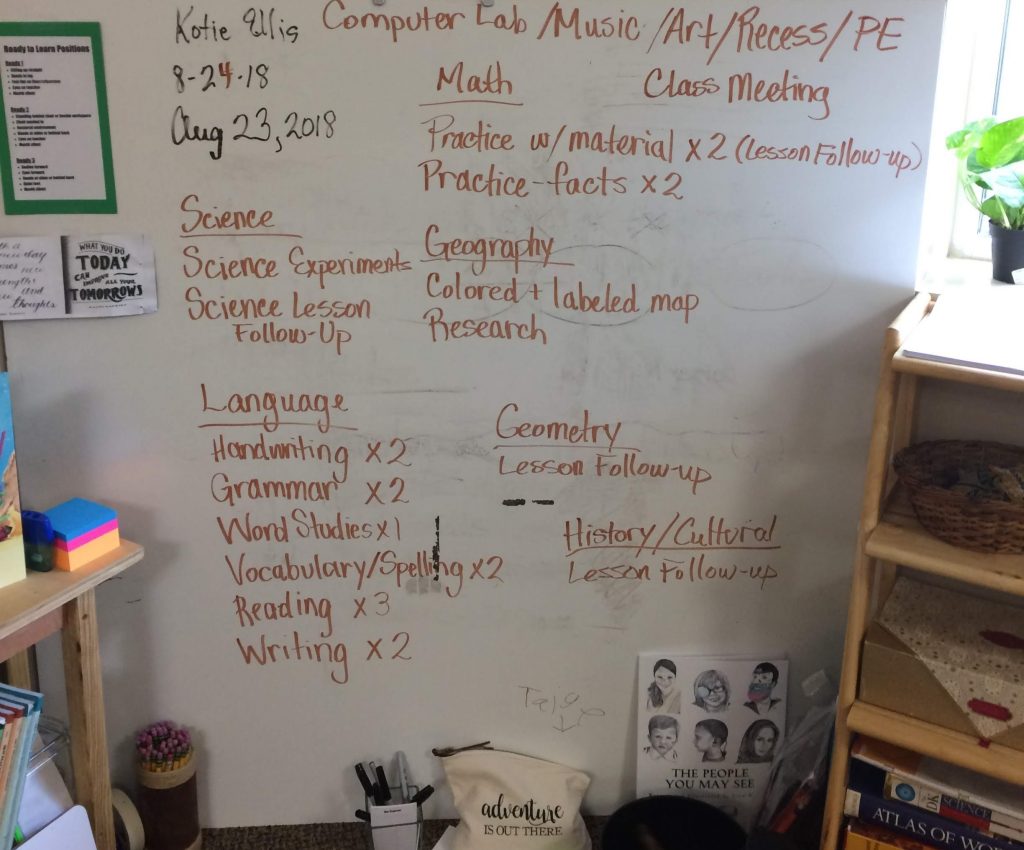 Katie Ellis
Computer Lab/Music/Art/Recess/PE
8-24-18
Aug 23, 2018
Math
Class Meeting
Practice w/material x2 (Lesson Follow-up)
Practice-facts x2
Science
Science Experiments
Science Lesson
Follow-Up
Geography
Colored + labeled map
Research
Language
Handwriting x2
Grammar x2
Word Studies x1
Vocabulary/Spelling x2
Reading x3
Writing x2
Geometry
Lesson Follow-up
History/Cultural
Lesson Follow-up
Ready to Learn Positions
Ready 1
Ready 2
Ready 3
WHAT YOU DO
TODAY
CAN IMPROVE ALL YOUR
TOMORROWS
new day
and
thoughts
adventure
IS OUT THERE
THE PEOPLE
YOU MAY SEE
DK
SCIENCE
ATLAS OF WO